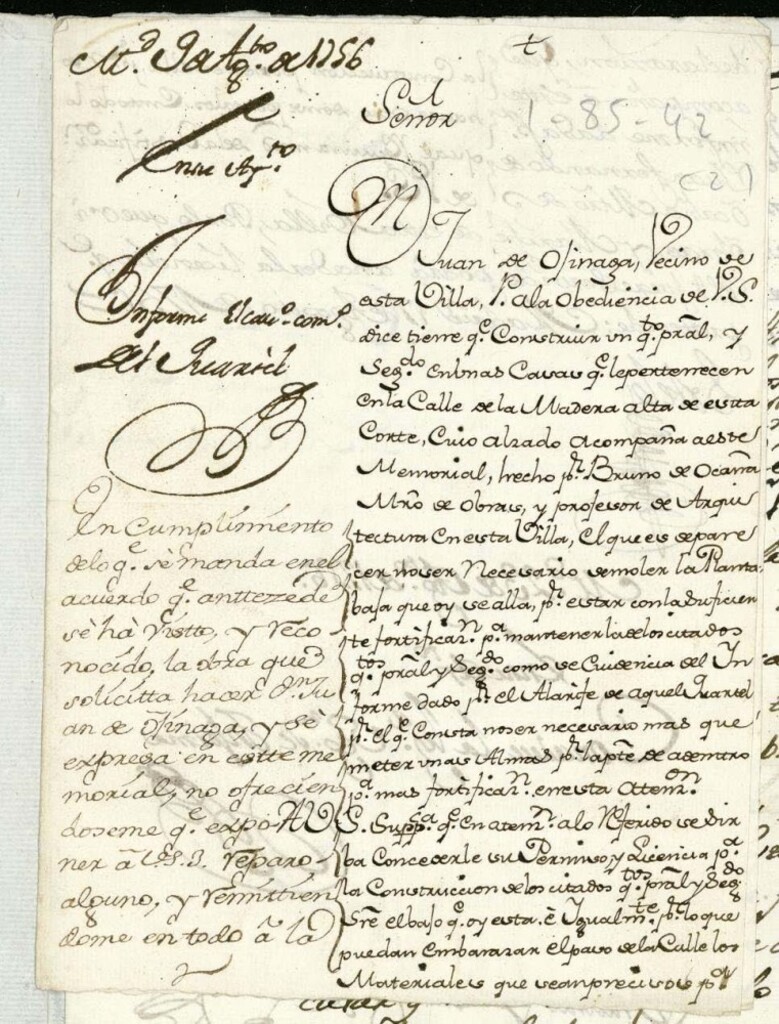 M.d 9 de Ag.to de 1756
En su Ay.to
Informe el cav.o com.o
del Quartel
En Cumplimiento
de lo q.e se manda en el
acuerdo q.e anttezede
sè hà visto, y reco
nocido, la obra que
solicitta hacer D.n Ju
an de Osinaga, y sè
expresa en estte me
morial, no ofrecien
doseme q.e expo-
ner à V.S.I. reparo
alguno, y remittien
dome en todo à la
Señor
1-85-42
(21)
Juan de Osinaga, Vecino de
esta Villa, P. a la Obediencia de V.S.
dice tiene q.e Construir un q.to pral, y
Seg.do en unas Casas q.e le pertenecen
en la Calle de la Madera alta de esta
Corte, Cuio alzado acompaña a este
Memorial, hecho p.r Bruno de Ocaña
Mro de Obras, y profesor de Arqui
tectura en esta Villa, el que es de pare
cer no ser Necesario demoler la Planta
baja que oy se alla, p.r estar con la suficien
te fortificaz.n p.a mantener la de los citados
q.tos pral y Seg.do como se Evidencia del In
forme dado p.r el Alarife de aquel Quartel
p.r el q.e Consta no ser necesario mas que
meter unas Almas p.r la pte de adentro
p.a mas fortificaz.n en esta Attem.on
A V.S. Supp.ca q.e en atem.n a lo Referido se sir
ba Concederle su Permiso y Licencia p.a
la Construccion de los citados q.tos pral y Seg.do
Sre el bajo q.e oy esta. è Igualm.te p.r lo que
puedan embarazar el paso de la Calle los
Materiales que sean precisos p.a